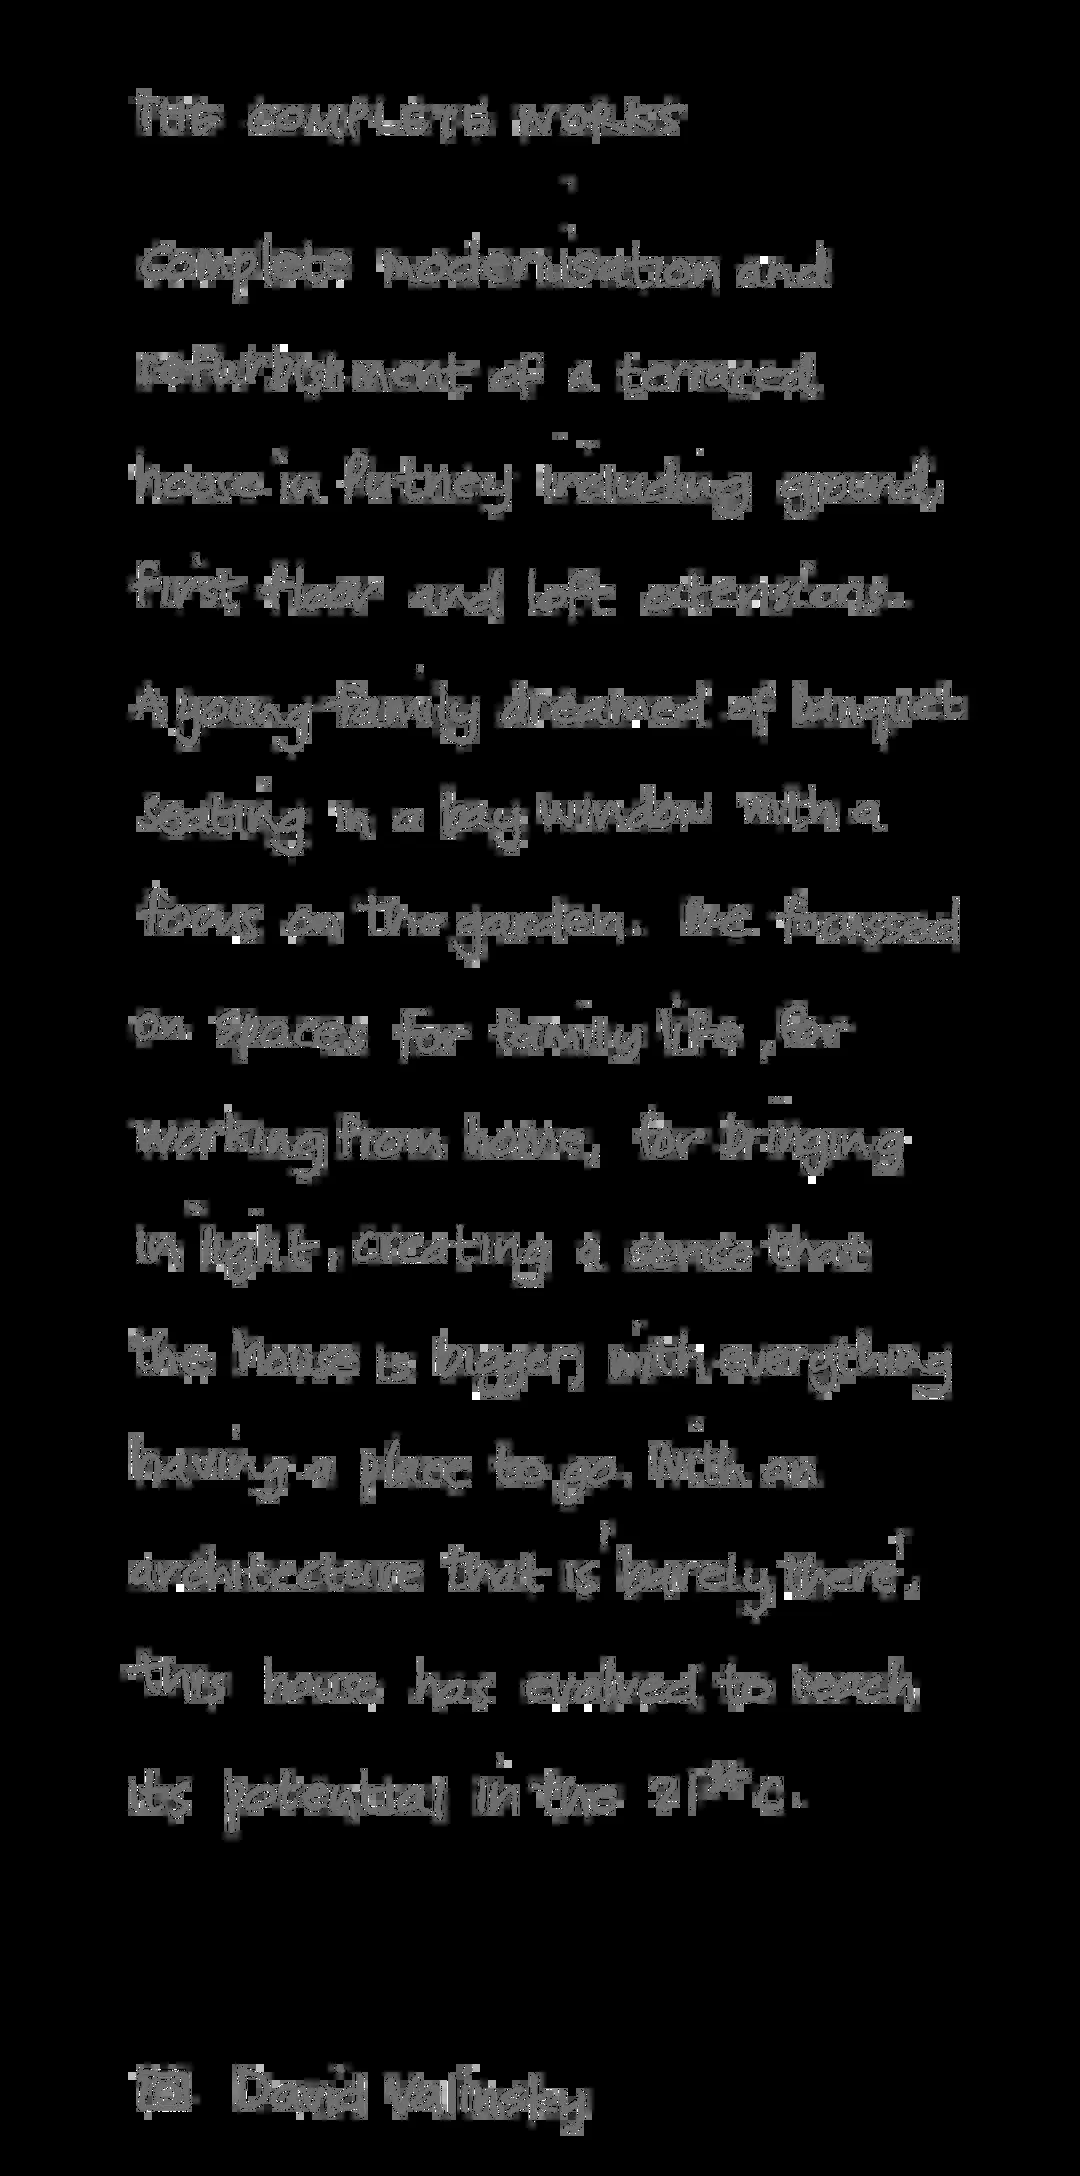 THE COMPLETE WORKS
Complete modernisation and
refurbishment of a terraced
house in Putney including ground,
first floor and loft extensions.
A young family dreamed of banquet
seating in a bay window with a
focus on the garden. We focussed
on spaces for family life, for
working from home, for bringing
in light, creating a sense that
the house is bigger, with everything
having a place to go. With an
architecture that is 'barely there',
this house has evolved to reach
its potential in the 21st C.
David Valinsky